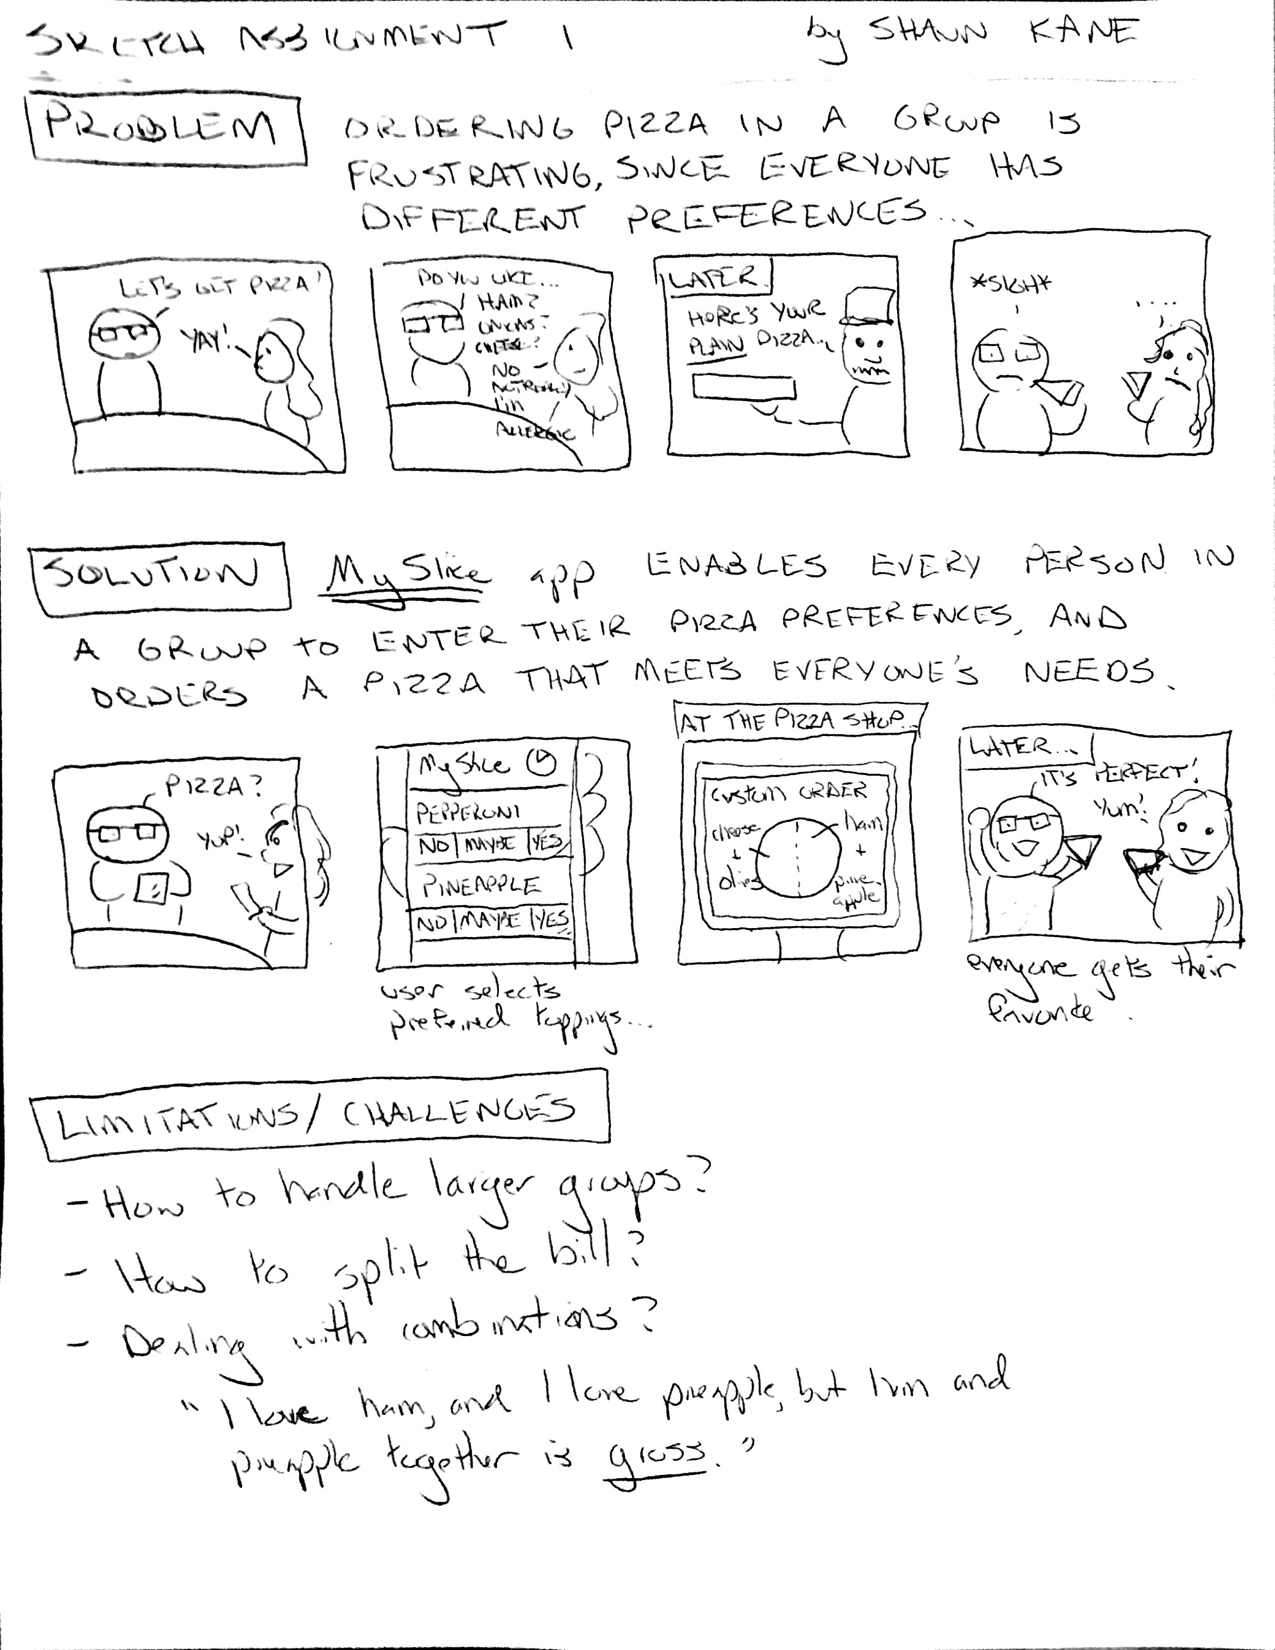 SKETCH ASSIGNMENT 1
by SHAUN KANE
PROBLEM
ORDERING PIZZA IN A GROUP IS
FRUSTRATING, SINCE EVERYONE HAS
DIFFERENT PREFERENCES...
LET'S GET PIZZA!
YAY!
DO YOU LIKE...
HAM?
ONIONS?
CHEESE?
NO
I'm
ALLERGIC
LATER
HERE'S YOUR
PLAIN PIZZA...
*SIGH*
....
SOLUTION
My Slice app ENABLES EVERY PERSON IN
A GROUP TO ENTER THEIR PIZZA PREFERENCES, AND
ORDERS A PIZZA THAT MEETS EVERYONE'S NEEDS.
PIZZA?
YUP!
My Slice
PEPPERONI
NO | MAYBE | YES
PINEAPPLE
NO | MAYBE | YES
user selects
preferred toppings...
AT THE PIZZA SHOP...
CUSTOM ORDER
cheese
+
olives
ham
+
pine-
apple
LATER...
IT'S PERFECT!
YUM!
everyone gets their
favorite..
LIMITATIONS/CHALLENGES
- How to handle larger groups?
- How to split the bill?
- Dealing with combinations?
"I love ham, and I love pineapple, but ham and
pineapple together is gross."